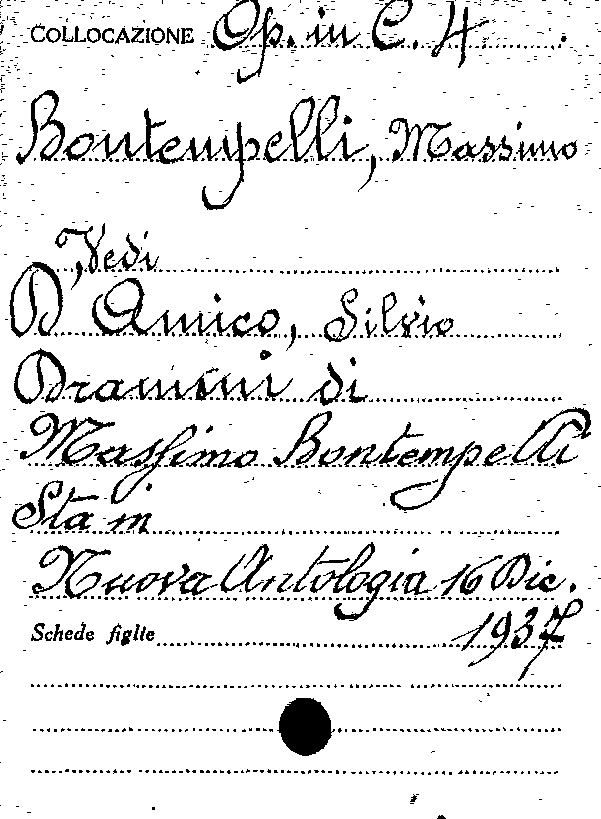 COLLOCAZIONE Op. in C. 4.
Bontempelli, Massimo
Vedi
D'Amico, Silvio
Drammi di
Massimo Bontempelli
Sta in
Nuova Antologia 16 Dic.
Schede figlie 1937